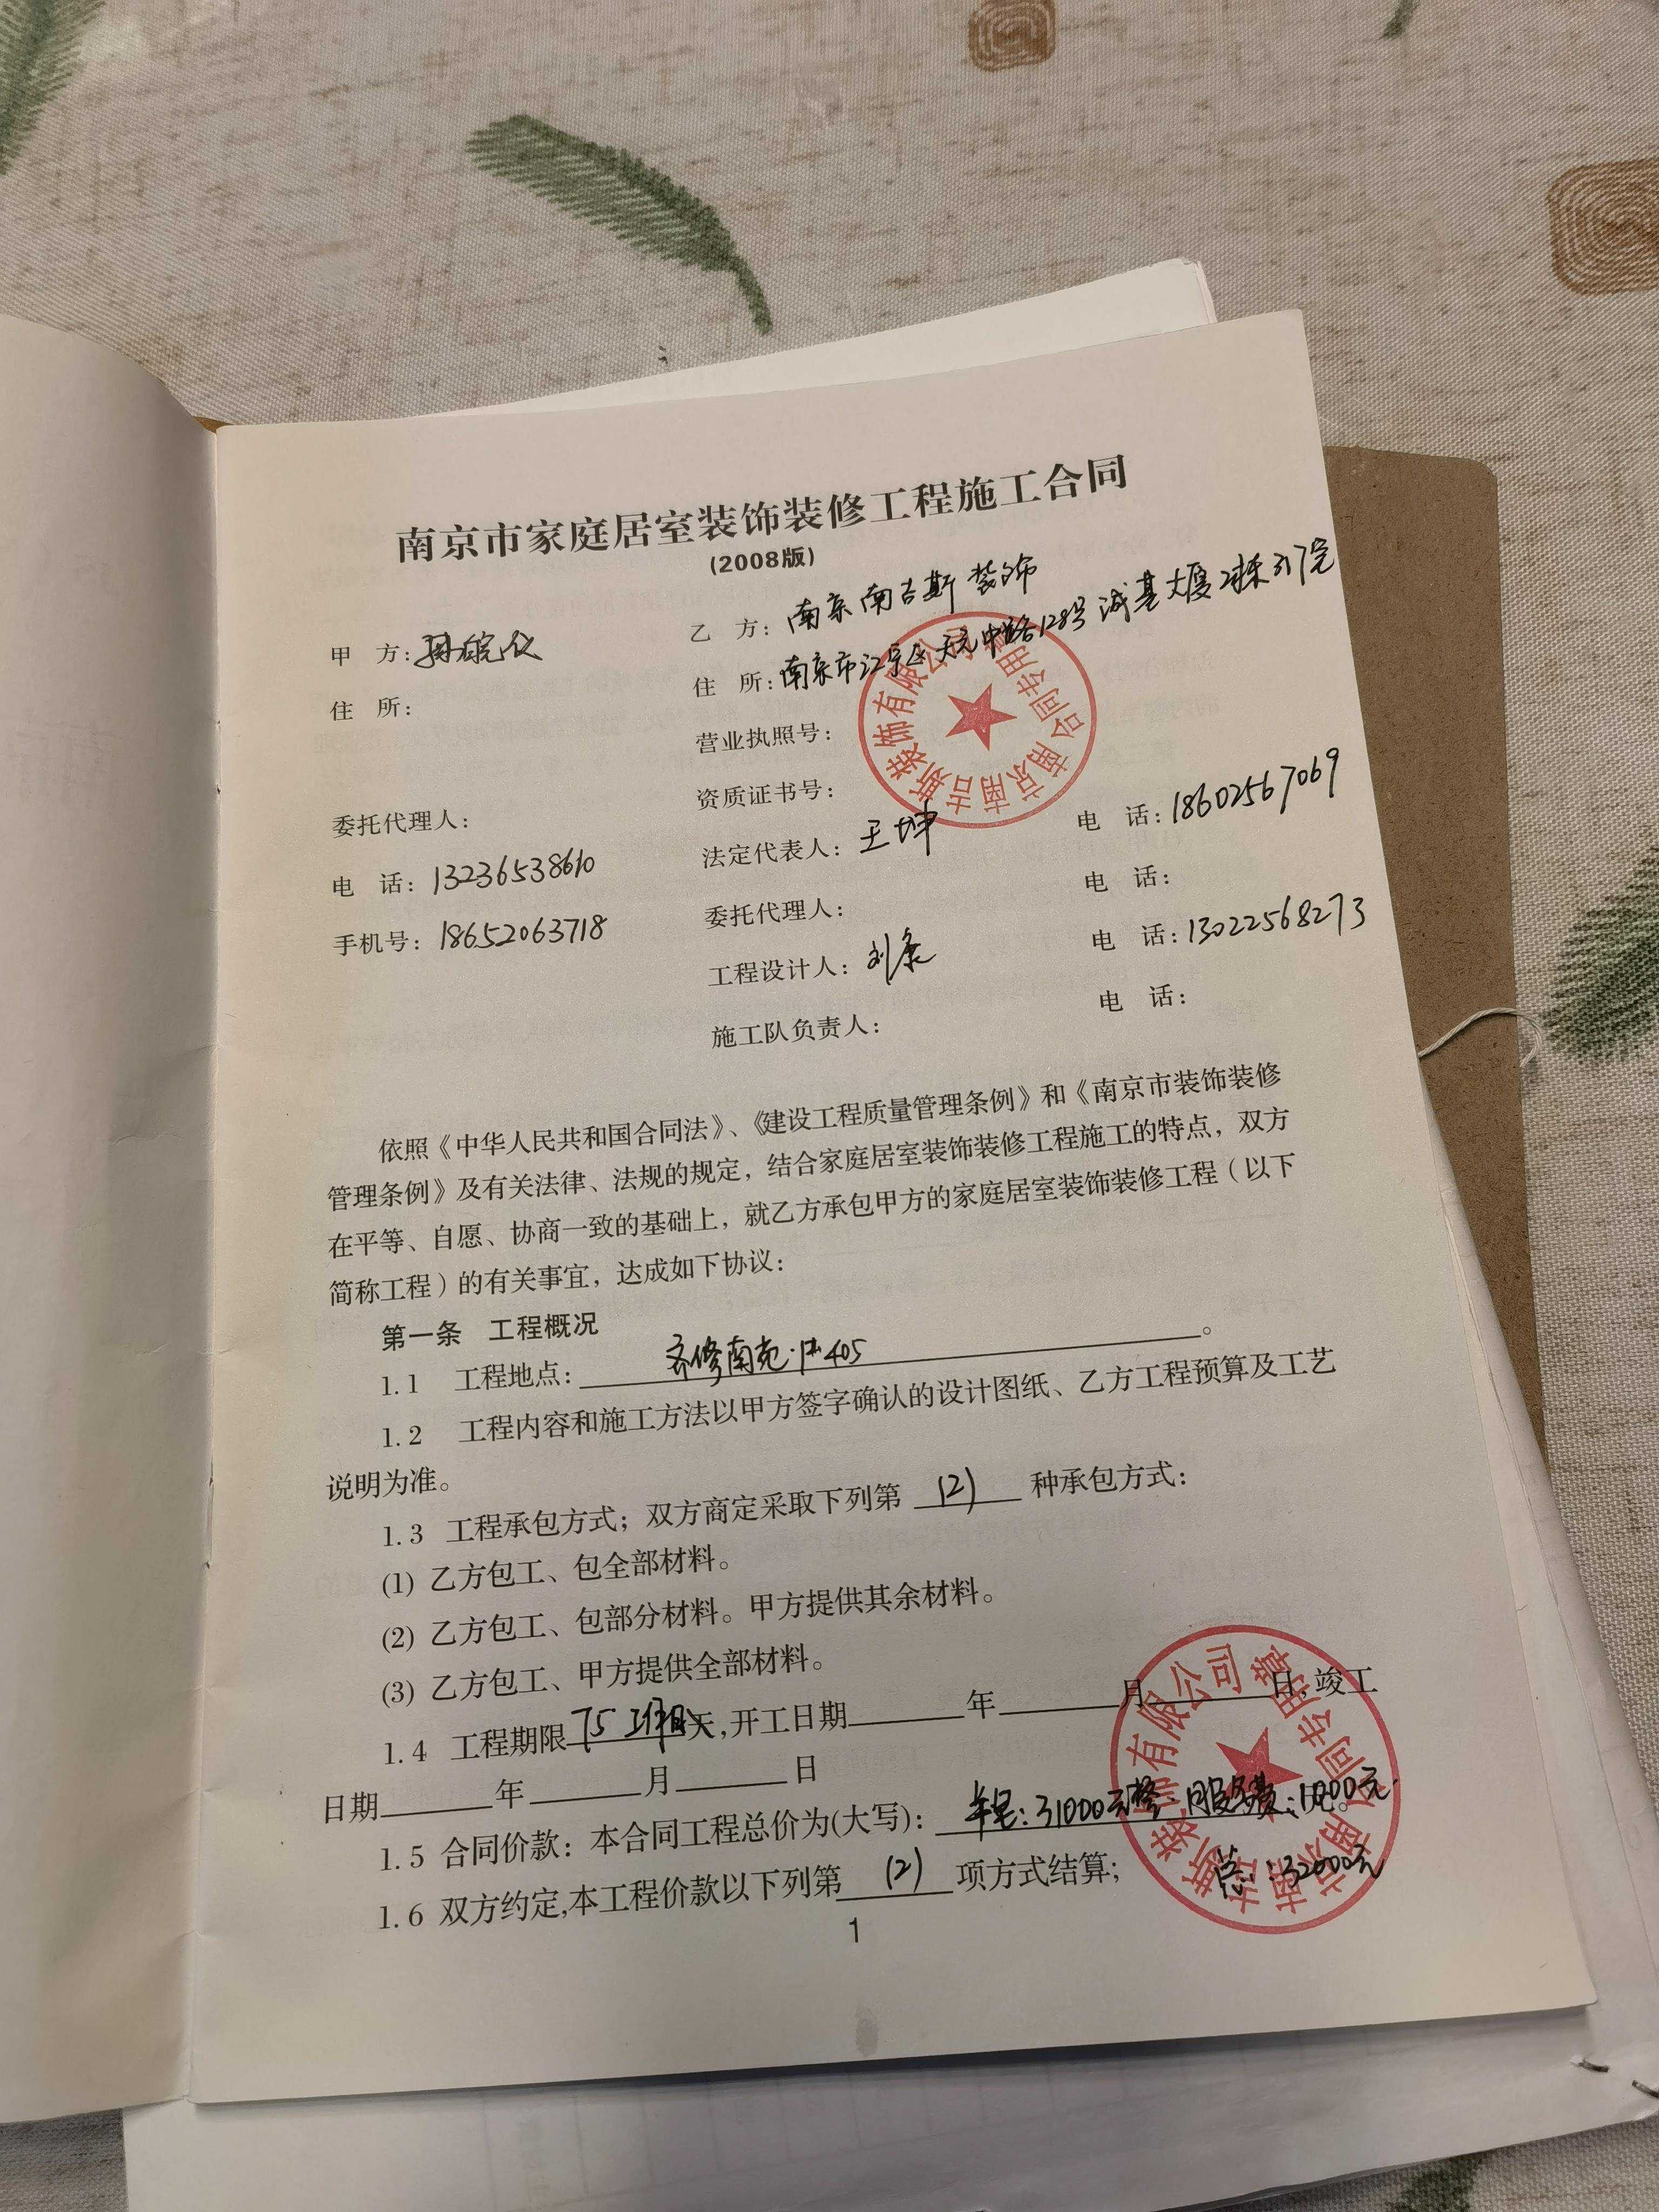 南京市家庭居室装饰装修工程施工合同
(2008版)
甲 方：孙皖仪
乙 方：南京南吉斯装饰
住 所：
住 所：南京市江宁区天元中路128号诚基大厦2栋317室
营业执照号：
资质证书号：
委托代理人：
法定代表人：王坤 电 话：18602567069
电 话：13236538610
委托代理人： 电 话：
手机号：18652063718
工程设计人：刘康 电 话：13022568273
施工队负责人： 电 话：
南京南吉斯装饰有限公司 合同专用章
依照《中华人民共和国合同法》、《建设工程质量管理条例》和《南京市装饰装修
管理条例》及有关法律、法规的规定，结合家庭居室装饰装修工程施工的特点，双方
在平等、自愿、协商一致的基础上，就乙方承包甲方的家庭居室装饰装修工程（以下
简称工程）的有关事宜，达成如下协议：
第一条 工程概况
1.1 工程地点：齐修南苑 405。
1.2 工程内容和施工方法以甲方签字确认的设计图纸、乙方工程预算及工艺
说明为准。
1.3 工程承包方式；双方商定采取下列第 (2) 种承包方式：
(1) 乙方包工、包全部材料。
(2) 乙方包工、包部分材料。甲方提供其余材料。
(3) 乙方包工、甲方提供全部材料。
1.4 工程期限 75 工作日 天,开工日期 年 月 日,竣工
日期 年 月 日
1.5 合同价款：本合同工程总价为(大写)：半包：31000元整 服务费：1000元
1.6 双方约定,本工程价款以下列第 (2) 项方式结算； 总：32000元
南京南吉斯装饰有限公司 合同专用章
1